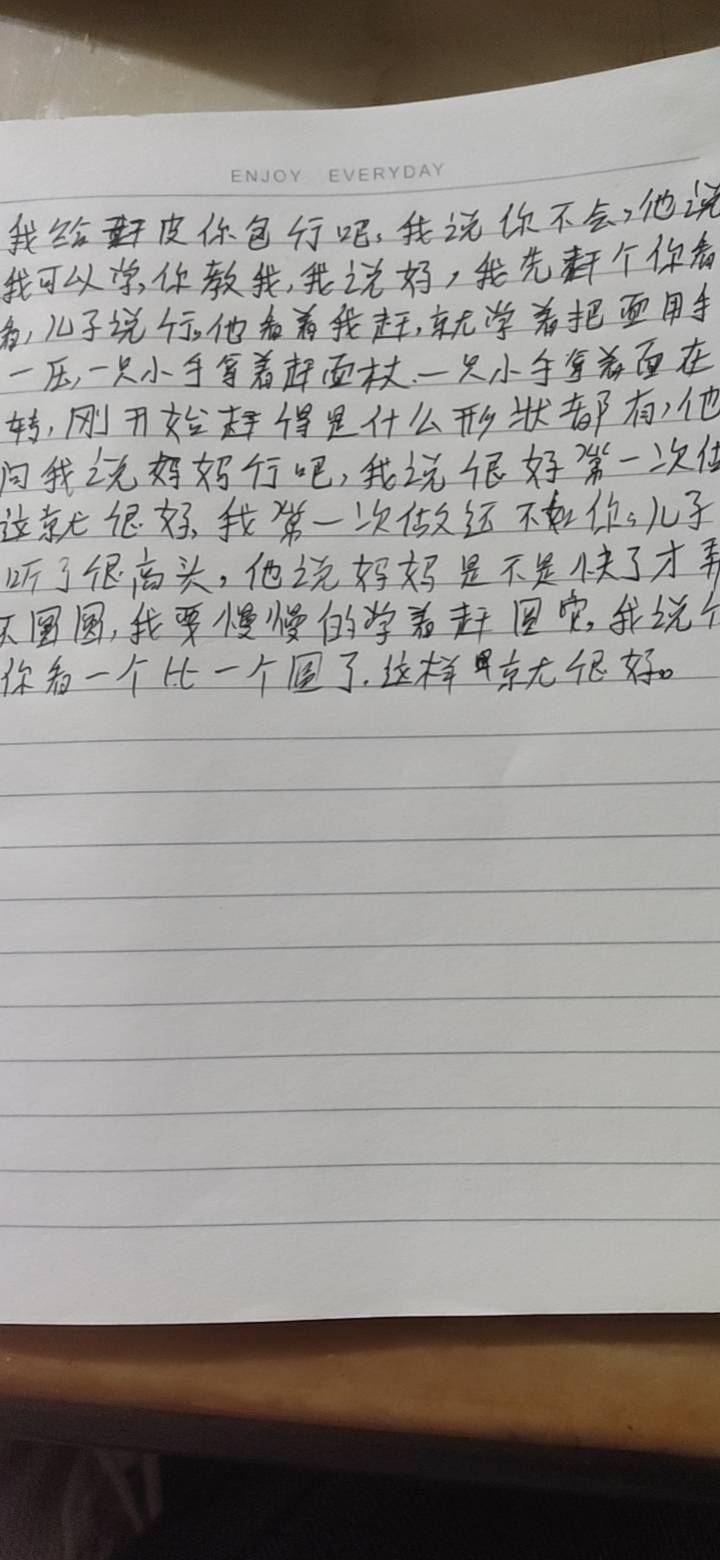 ENJOY EVERYDAY
我给赶皮你包行吧,我说你不会,他说
我可以学,你教我,我说好,我先赶个你看
看,儿子说行。他看着我赶,就学着把面用手
一压,一只小手拿着赶面杖.一只小手拿着面在
转,刚开始赶得是什么形状都有,他
问我说妈妈行吧,我说很好第一次做
这就很好,我第一次做还不如你。儿子
听了很高头,他说妈妈是不是快了才弄
不圆圆,我要慢慢的学着赶圆它,我说行
你看一个比一个圆了.这样就很好。